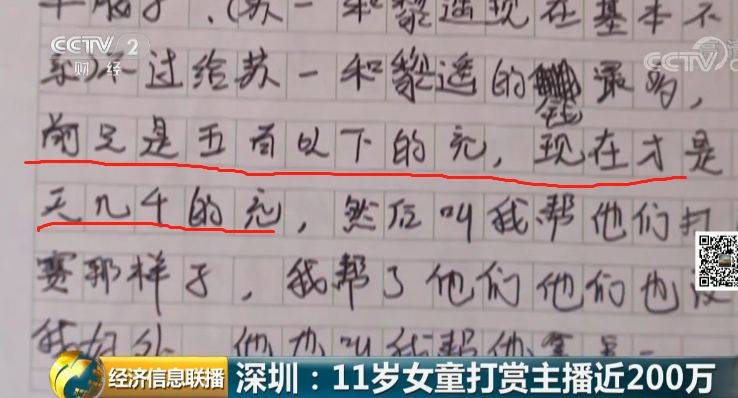 CCTV 2
财经
CCTV 高清
(苏一和黎遥现在基本不
过给苏一和黎遥的钱最多,
前是五百以下的充,现在才是
几千的充,然后叫我帮他们打
赛那样子,我帮了他们他们也没
我好处 他也叫我帮他
经济信息联播
深圳:11岁女童打赏主播近200万